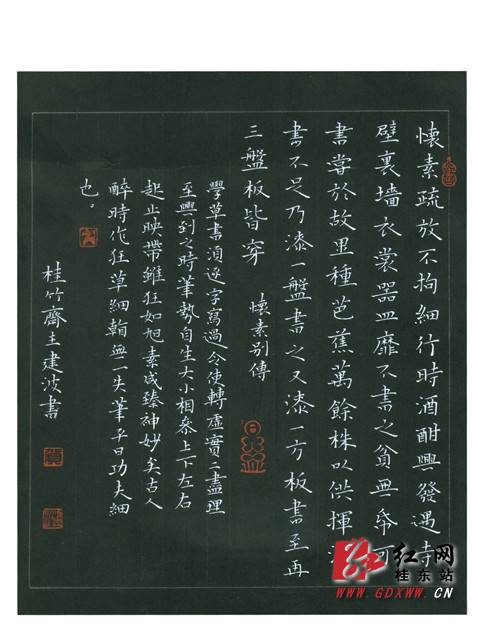 懷素疏放不拘細行時酒酣興發遇寺
壁裏墙衣裳器皿靡不書之貧無帋可
書甞於故里種芭蕉萬餘株以供揮
書不足乃漆一盤書之又漆一方板書至再
三盤板皆穿
懷素別傳
學草書須逐字寫過令使轉虛實一一盡理
至興到之時筆勢自生大小相叅上下左右
起止映帶雖狂如旭素咸臻神妙矣古人
醉時作狂草細翰無一失筆平日功夫細
也。
桂竹齋王建波書
红网
桂东站
WWW.GDXWW.CN